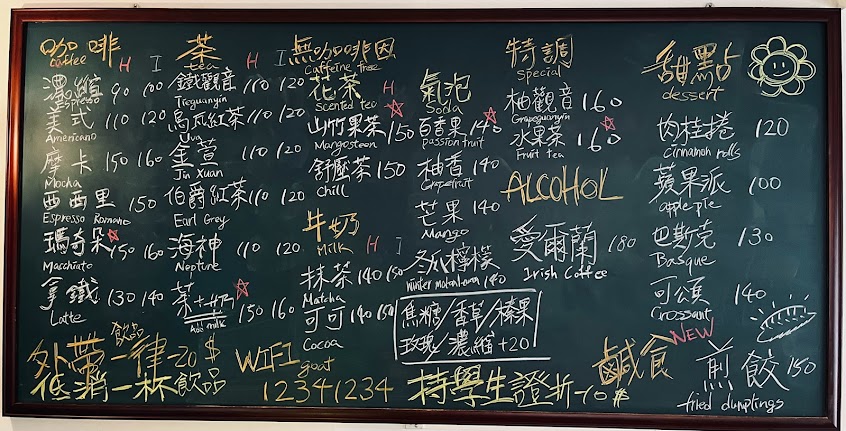 咖啡
coffee H I
濃縮 90 100
Espresso
美式 110 120
Americano
摩卡 150 160
Mocha
西西里 150
Espresso Romano
瑪奇朵 150 160
Macchiato
拿鐵 130 140
Latte
茶 H I
tea
鐵觀音 110 120
Tieguanyin
烏瓦紅茶 110 120
Uva
金萱 110 120
Jin Xuan
伯爵紅茶 110 120
Earl Grey
海神 110 120
Neptune
茶+奶 150 160
Add milk
無咖啡因
Caffeine free
花茶 H
Scented tea
山竹果茶 150
Mangosteen
舒壓茶 150
Chill
牛奶
Milk H I
抹茶 140 150
Matcha
可可 140 150
Cocoa
氣泡
Soda
百香果 140
passion fruit
柚香 140
Grapefruit
芒果 140
Mango
冬瓜檸檬
140
焦糖/香草/榛果
玫瑰/濃縮+20
特調
Special
柚觀音 160
Grapeguanyin
水果茶 160
Fruit tea
ALCOHOL
愛爾蘭 180
Irish Coffee
甜點
dessert
肉桂捲 120
Cinnamon rolls
蘋果派 100
apple pie
巴斯克 130
Basque
可頌 140
Crossant
鹹食 NEW
煎餃 150
fried dumplings
外帶飲品一律-20$
低消一杯飲品
WIFI goat
12341234
持學生證折-10$